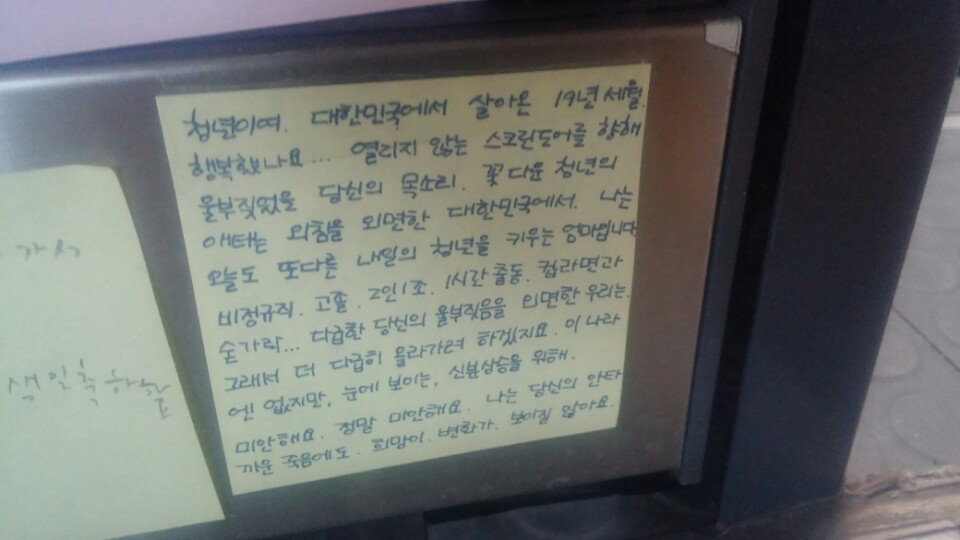 청년이여. 대한민국에서 살아온 19년 세월.
행복했나요... 열리지 않는 스크린도어를 향해
울부짖었을 당신의 목소리. 꽃다운 청년의
애타는 외침을 외면한 대한민국에서. 나는
오늘도 또다른 내일의 청년을 키우는 엄마입니다
비정규직. 고졸. 2인1조. 1시간 출동. 컵라면과
숟가락... 다급한 당신의 울부짖음을 외면한 우리는.
그래서 더 다급히 올라가려 하겠지요. 이 나라
엔 없지만, 눈에 보이는, 신분상승을 위해.
미안해요. 정말 미안해요. 나는 당신의 안타
까운 죽음에도. 희망이. 변화가. 보이질 않아요.